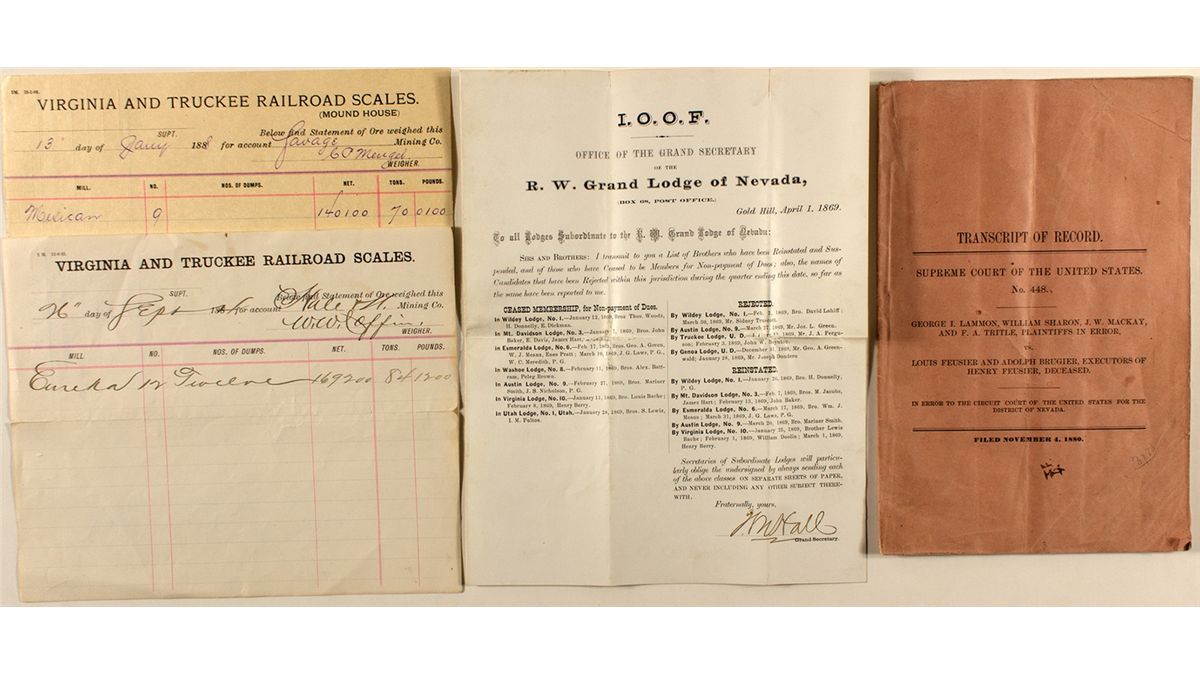 VIRGINIA AND TRUCKEE RAILROAD SCALES.
(MOUND HOUSE)
SUPT. Below find Statement of Ore weighed this
13" day of Jany 188 for account Savage Mining Co.
CO Mengel
WEIGHER.
MILL. NO. NOS. OF DUMPS. NET. TONS. POUNDS.
Mexican 9 140100 70 0100
VIRGINIA AND TRUCKEE RAILROAD SCALES.
SUPT. Below find Statement of Ore weighed this
26" day of Sept 188 for account Hale & N. Mining Co.
W.W. Coffin,
WEIGHER.
MILL NO. NOS. OF DUMPS. NET. TONS. POUNDS.
Eureka 12 Twelve 169200 84 1200
I.O.O.F.
OFFICE OF THE GRAND SECRETARY
OF THE
R. W. Grand Lodge of Nevada,
(BOX 68, POST OFFICE.)
Gold Hill, April 1, 1869.
To all Lodges Subordinate to the R. W. Grand Lodge of Nevada:
SIRS AND BROTHERS: I transmit to you a List of Brothers who have been Reinstated and Sus-
pended, and of those who have Ceased to be Members for Non-payment of Dues; also, the names of
Candidates that have been Rejected within this jurisdiction during the quarter ending this date, so far as
the same have been reported to me.
CEASED MEMBERSHIP, for Non-payment of Dues.
In Wildey Lodge, No. 1.—January 12, 1869, Bros. Thos. Woods,
H. Donnelly, E. Dickman.
In Mt. Davidson Lodge, No. 3.—January 7, 1869, Bros. John
Baker, E. Davis, James Hart,
In Esmeralda Lodge, No. 6.—Feb 17, 1869, Bros. Geo. A. Green,
W. J. Means, Enes Pratt; March 10, 1869, J. G. Laws, P. G.,
W. C. Meredith, P. G.
In Washoe Lodge, No. 8.—February 11, 1869, Bros. Alex. Bart-
ram, Peleg Brown.
In Austin Lodge, No. 9.—February 27, 1869, Bros. Mariner
Smith, J. S. Nicholson, P. G.
In Virginia Lodge, No. 10.—January 11, 1869, Bro. Louis Bache;
February 8, 1869, Henry Berry.
In Utah Lodge, No. 1, Utah.—January 28, 1869, Bros. S. Lewis,
I. M. Fultos.
REJECTED.
By Wildey Lodge, No. 1.—Feb. 2, 1869, Bro. David Lahiff;
March 30, 1869, Mr. Sidney
By Austin Lodge, No. 9.—March 27, 1869, Mr. Jos. L. Green.
By Truckee Lodge, U. D. 1869, Mr. J. A. Fergu-
son; February 3, 1869, John W.
By Genoa Lodge, U. D.—December 31, 1869, Mr. Geo. A. Green-
wald; January 28, 1869, Mr. Joseph Dondero
REINSTATED.
By Wildey Lodge, No. 1.—January 26, 1869, Bro. H. Donnelly,
P. G.
By Mt. Davidson Lodge, No. 3.—Feb. 7, 1869, Bros. M. Jacobs,
James Hart; February 13, 1869, John Baker.
By Esmeralda Lodge, No. 6.—March 17, 1869, Bro. Wm. J.
Means; March 31, 1869, J. G. Laws, P. G.
By Austin Lodge, No. 9.—March 20, 1869, Bro. Mariner Smith.
By Virginia Lodge, No. 10.—January 25, 1869, Brother Lewis
Bache; February 1, 1869, William Doolin; March 1, 1869,
Henry Berry.
Secretaries of Subordinate Lodges will particu-
larly oblige the undersigned by always sending each
of the above classes ON SEPARATE SHEETS OF PAPER,
AND NEVER INCLUDING ANY OTHER SUBJECT THERE-
WITH.
Fraternally, yours,
Hall
Grand Secretary.
TRANSCRIPT OF RECORD.
SUPREME COURT OF THE UNITED STATES.
No. 448.
GEORGE I. LAMMON, WILLIAM SHARON, J. W. MACKAY,
AND F. A. TRITLE, PLAINTIFFS IN ERROR,
VS.
LOUIS FEUSIER AND ADOLPH BRUGIER, EXECUTORS OF
HENRY FEUSIER, DECEASED.
IN ERROR TO THE CIRCUIT COURT OF THE UNITED STATES FOR THE
DISTRICT OF NEVADA.
FILED NOVEMBER 4, 1880.